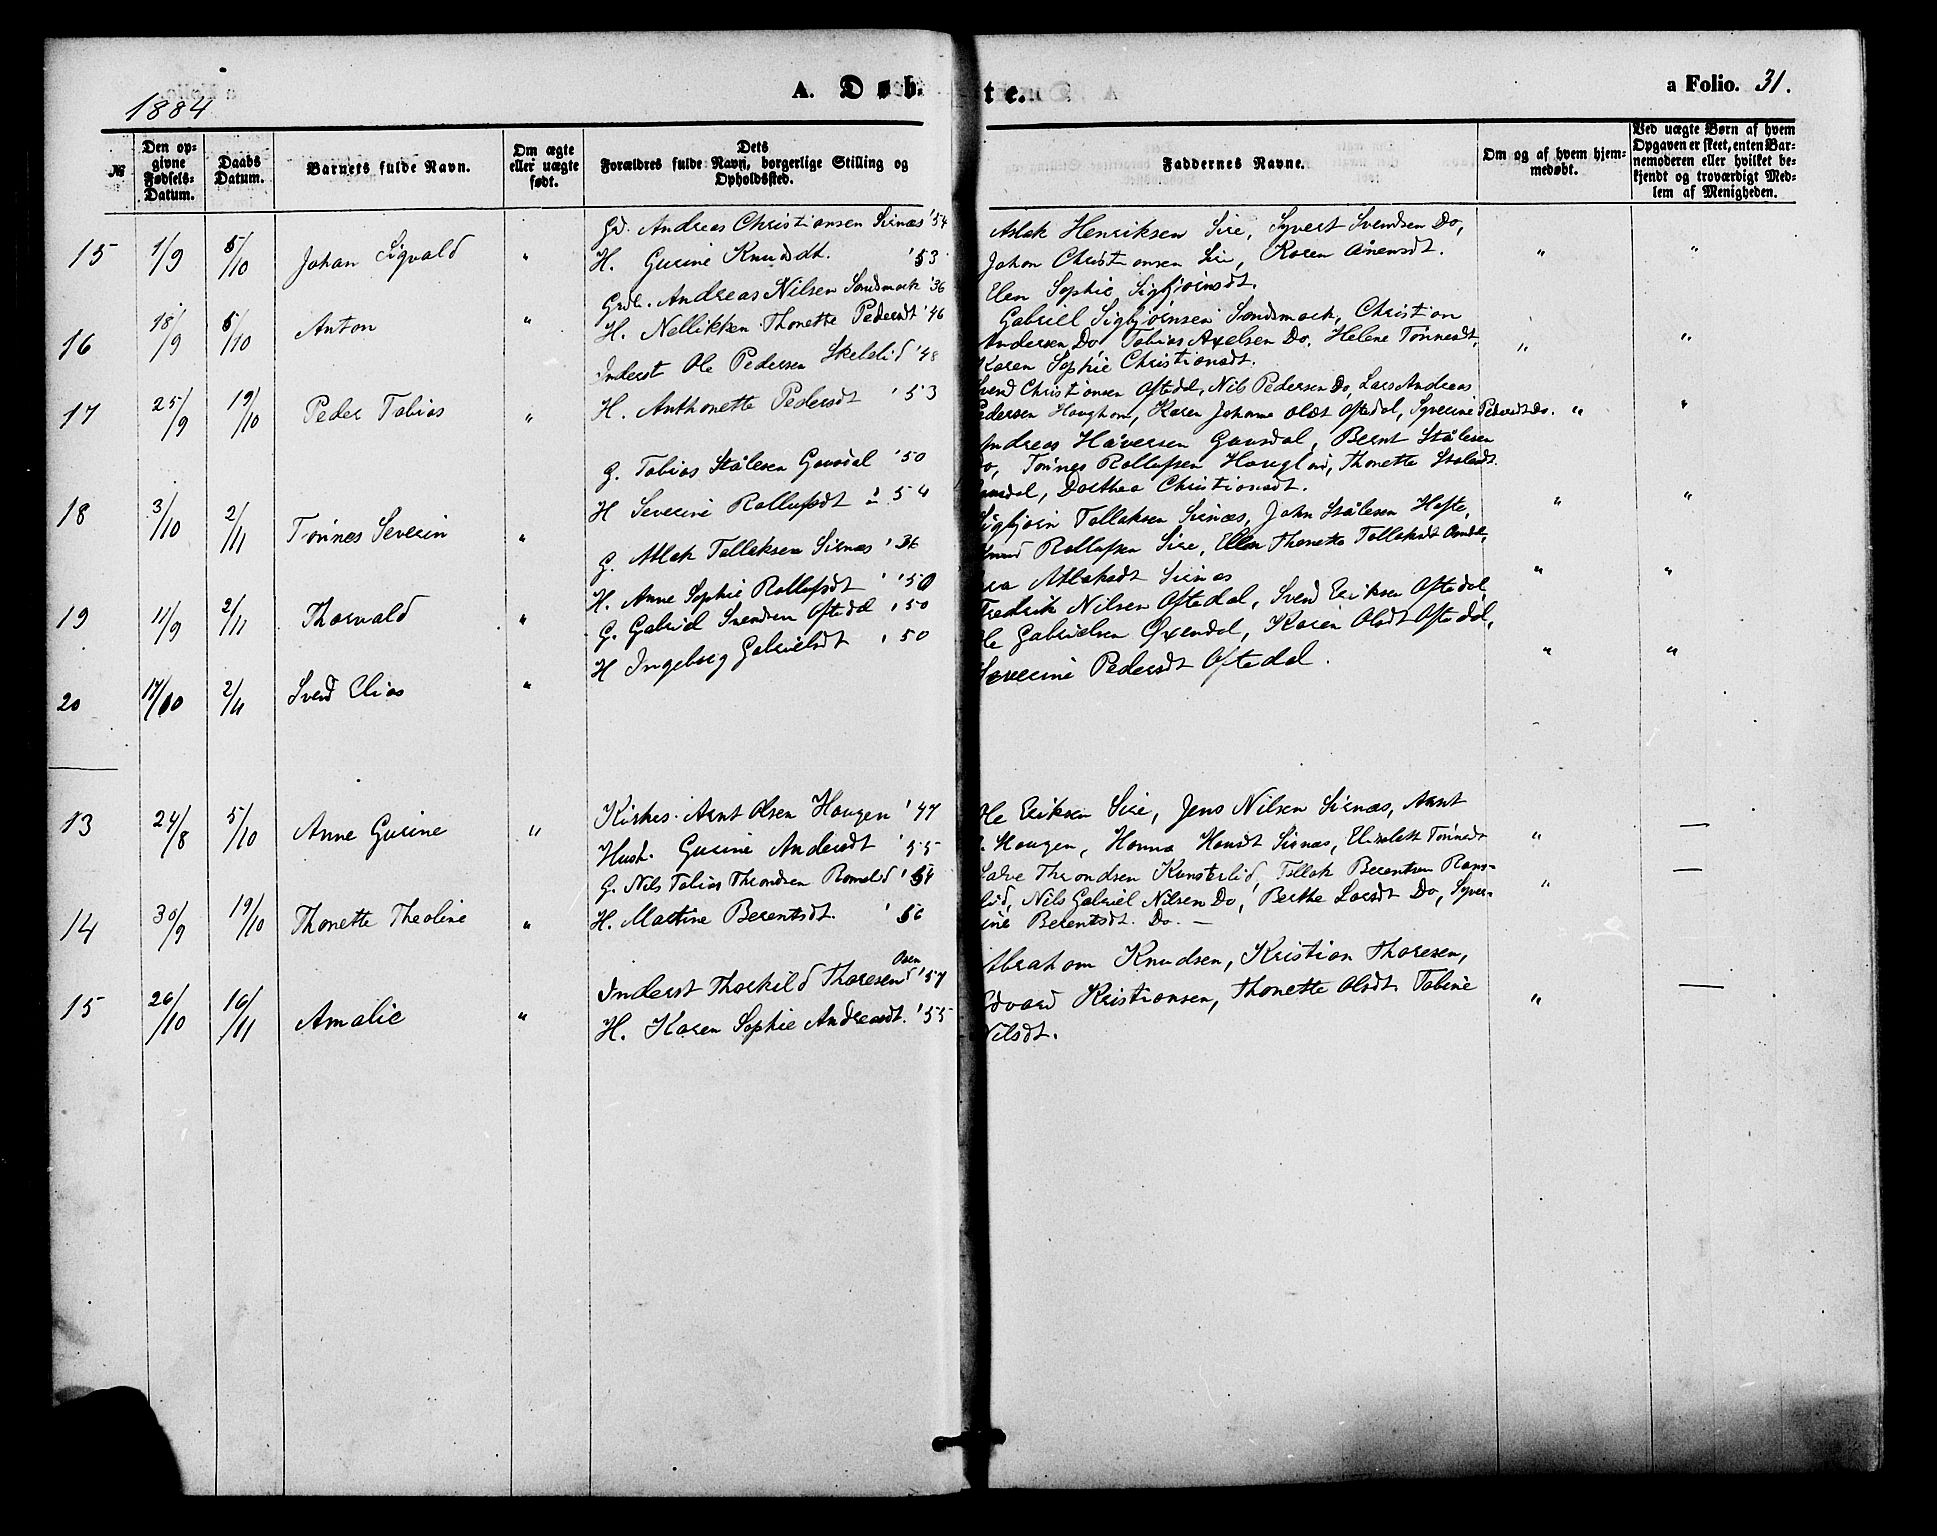 1884
A. Døbte.
a Folio. 31.
№
Den opgivne Fødsels-Datum.
Daabs Datum.
Barnets fulde Navn.
Om ægte eller uægte født.
Dets Forældres fulde Navn, borgerlige Stilling og Opholdssted.
Faddernes Navne.
Om og af hvem hjemmedøbt.
Ved uægte Børn af hvem Opgaven er skeet, enten Barnemoderen eller hvilket bekjendt og troværdigt Medlem af Menigheden.
15 1/9 5/10 Johan Sigvald "
Gd. Andreas Christiansen Sirnæs '54
H. Gurine Knudsdt. '53
Aslak Henriksen Sire, Syvert Svendsen Do,
Johan Christiansen Sire, Karen Aanensdt.
Elen Sophie Sigbjørnsdt.
16 18/9 5/10 Anton "
Grdb. Andreas Nilsen Sandsmark '36
H. Nellikken Thonette Pedersdt '46
Gabriel Sigbjørnsen Sandsmark, Christian
Andersen Do, Tobias Axelsen Do, Helene Tønnesdt,
Karen Sophie Christiansdt.
17 25/9 19/10 Peder Tobias "
Inderst Ole Pedersen Skelslid '48
H. Anthonette Pedersdt '53
Svend Christiansen Oftedal, Nils Pedersen Do, Lars Andreas
Pedersen Haughom, Karen Johanne Olsdt Oftedal, Syverine Pedersdt Do.
18 3/10 2/11 Tønnes Severin "
G. Tobias Stålesen Gausdal '50
H Severine Rollufsdt '54
Andreas Håversen Gausdal, Bernt Stålesen
Do, Tønnes Rollufsen Haugland, Thonette Stalesdt.
Gausdal, Dorthea Christiansdt.
19 11/9 2/11 Thorvald "
G. Atlak Tollaksen Sirnæs '36
H. Anne Sophie Rollufsdt '50
Sigbjørn Tollaksen Sirnæs, John Stålesen Hofte,
Rollufsen Sire, Ellen Thonette Tollaksdt
Atlaksdt Sirnæs
20 17/10 2/11 Svend Elias "
G. Gabriel Svendsen Oftedal '50
H Ingeborg Gabrielsdt '50
Fredrik Nilsen Oftedal, Svend Eriksen Oftedal,
Ole Gabrielsen Øxendal, Karen Olsdt Oftedal,
Severine Pedersdt Oftedal.
13 24/8 5/10 Anne Gurine "
Kirkes. Arnt Olsen Haugen '47
Hust. Gurine Andersdt '55
Ole Eriksen Sire, Jens Nilsen Sirnæs, Arnt
Haugen, Hanna Hansdt Sirnæs, Elisabett Tønnesdt
14 30/9 19/10 Thonette Theoline "
G. Nils Tobias Throndsen Ramslid '54
H. Martine Berentsdt. '56
Salve Throndsen Kunsterlid, Tollak Berentsen Rams-
lid, Nils Gabriel Nilsen Do, Berthe Larsdt Do, Syver-
ine Berentsdt. Do.
15 26/10 16/11 Amalie "
Osen
Inderst Thorkild Thoresen '57
H. Karen Sophie Andreasdt. '55
Abraham Knudsen, Kristian Thoresen,
Edvard Kristiansen, Thonette Olsdt. Tobine
Nilsdt.